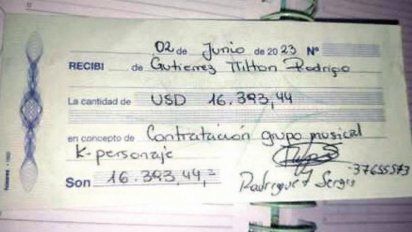 02 de Junio de 2023 Nº
RECIBI de Gutierrez Milton Rodrigo
La cantidad de USD 16.393,44
en concepto de Contratación grupo musical
K-personaje
Son 16.393,44,=
Rodriguez Sergio
37655573